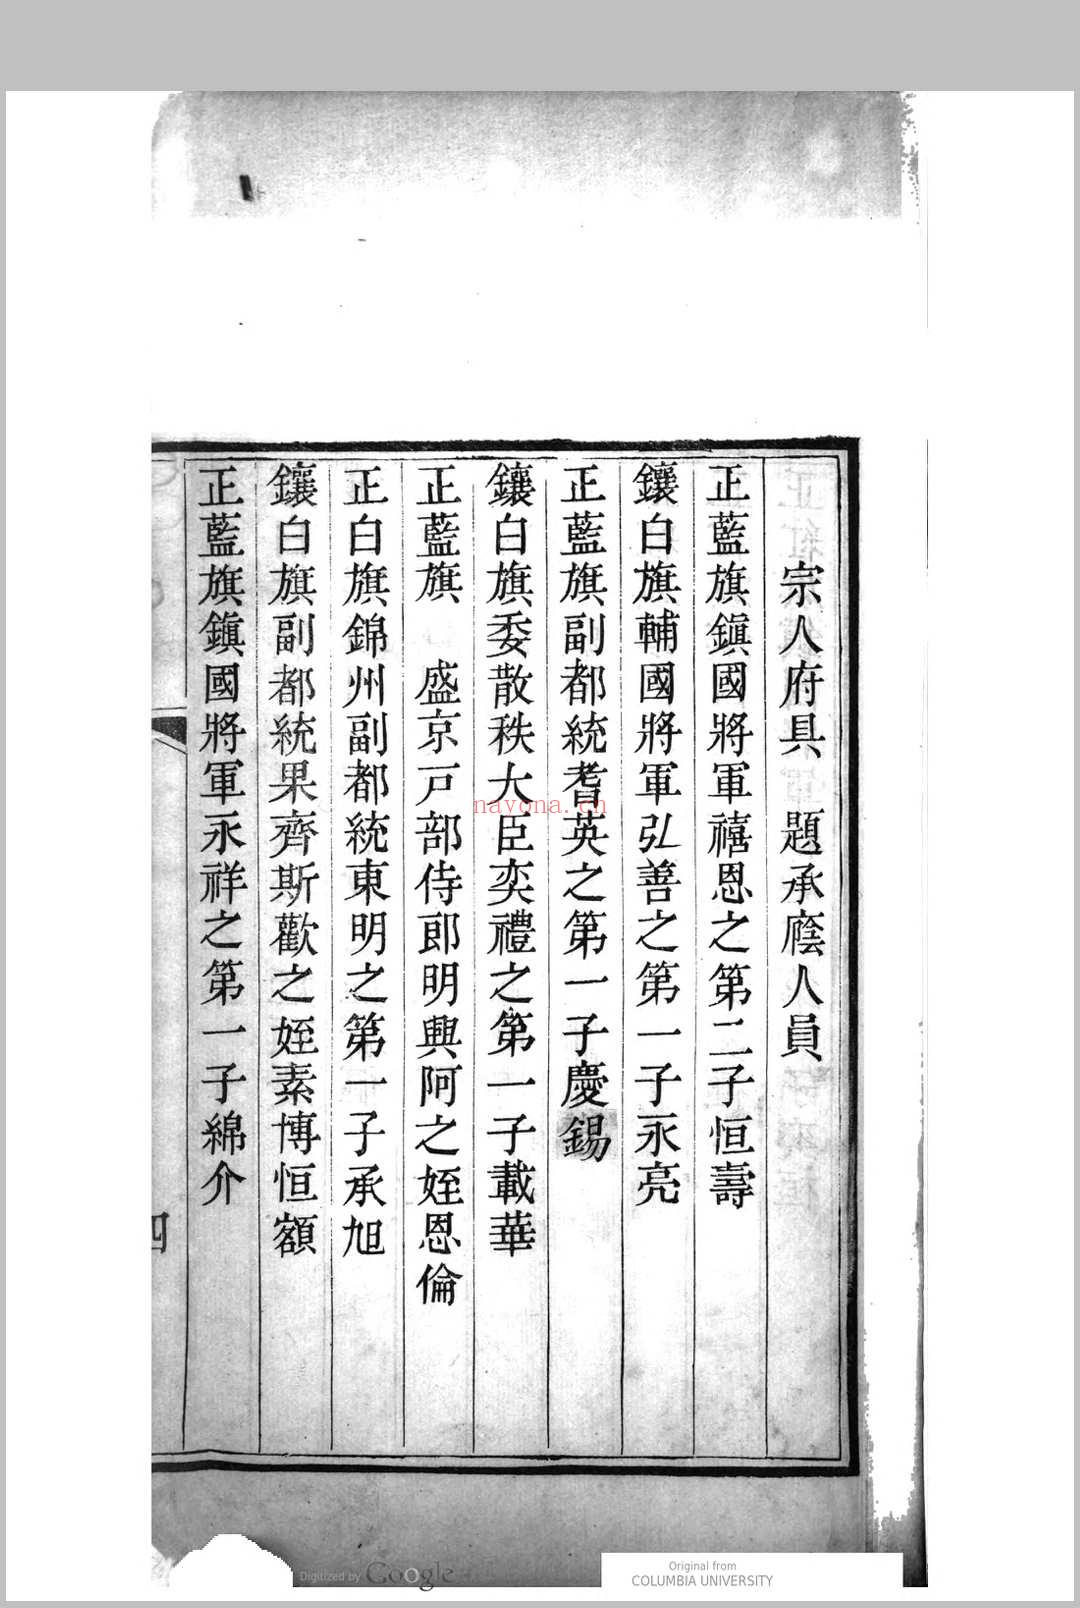 宗人府具　題承廕人員
正藍旗鎭國將軍禧恩之第二子恒壽
鑲白旗輔國將軍弘善之第一子永亮
正藍旗副都統耆英之第一子慶錫
鑲白旗委散秩大臣奕禮之第一子載華
正藍旗　盛京戸部侍郎明興阿之姪恩倫
正白旗錦州副都統東明之第一子承旭
鑲白旗副都統果齊斯歡之姪素博恒額
正藍旗鎭國將軍永祥之第一子綿介
四
nayona.cn
Digitized by Google
Original from
COLUMBIA UNIVERSITY